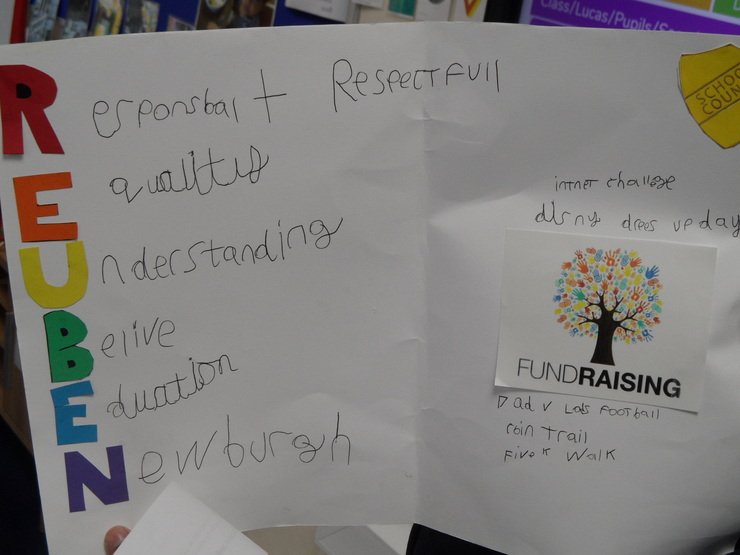 Class/Lucas/Pupils/S
Responsbalt Respectfull
Equalitys
Understanding
Belive
Eduation
Newburgh
SCHOO
COUN
intnet challege
disny drees up day
FUNDRAISING
Dad v Lads Football
coin trail
Five K walk